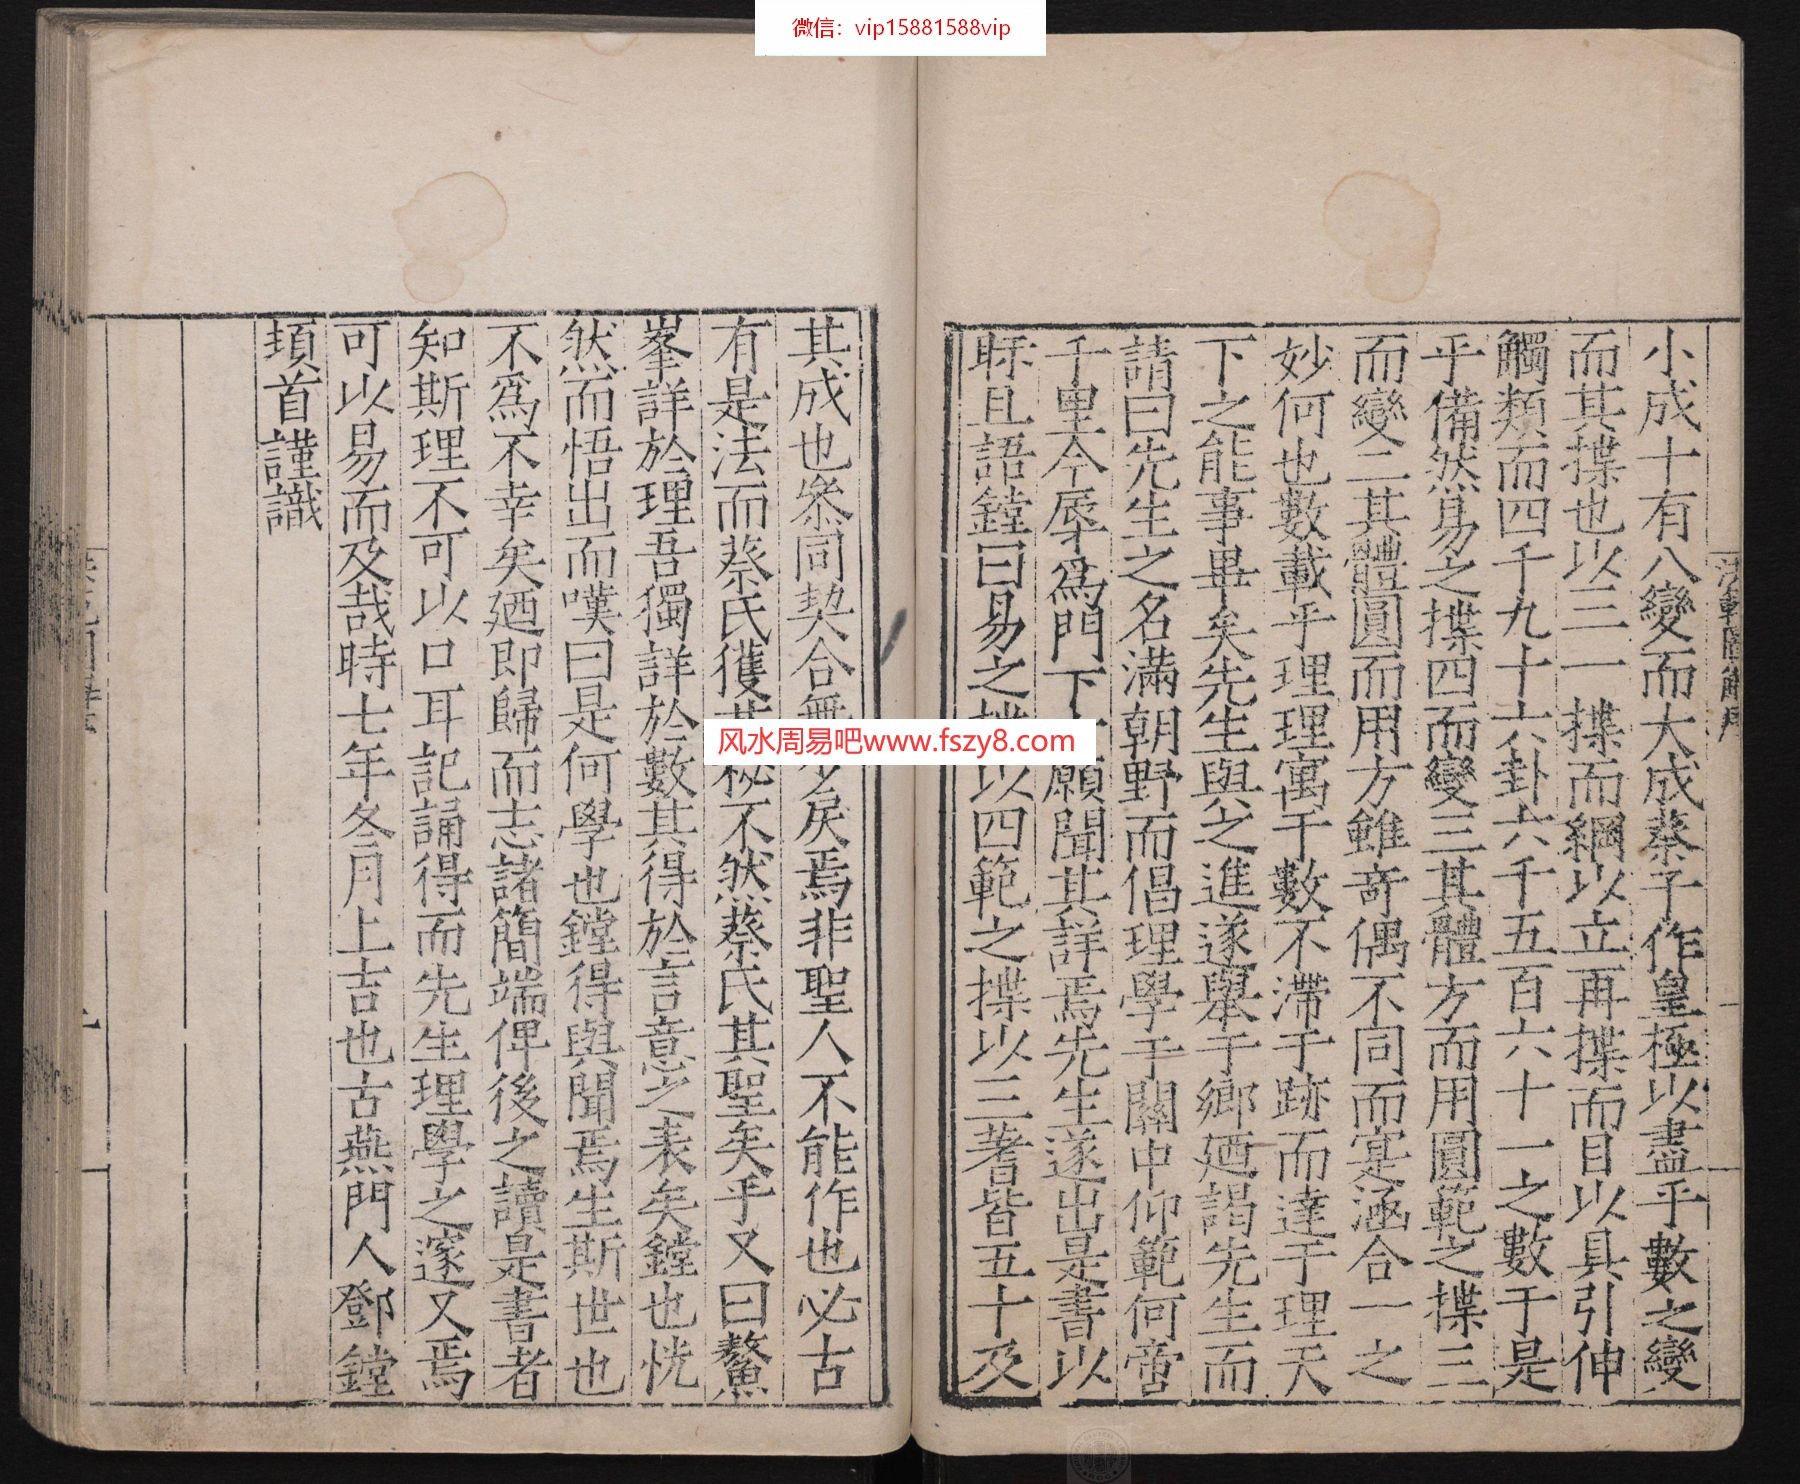 微信：vip15881588vip
小成十有八變而大成蔡子作皇極以盡乎數之變
而其揲也以三一揲而綱以立再揲而目以具引伸
觸類而四千九十六卦六千五百六十一之數于是
乎備然易之揲四而變三其體方而用圓範之揲三
而變二其體圓而用方雖奇偶不同而寔涵合一之
妙何也數載乎理理寓于數不滯于跡而達于理天
下之能事畢矣先生與之進遂舉于鄉廼謁先生而
請曰先生之名滿朝野而倡理學于關中仰範何啻
千里今辱爲門下願聞其詳焉先生遂出是書以
眎且語鏜曰易之揲以四範之揲以三蓍皆五十及
其成也叅同契合無戾焉非聖人不能作也必古
有是法而蔡氏獲其秘不然蔡氏其聖矣乎又曰鰲
峯詳於理吾獨詳於數其得於言意之表矣鏜也恍
然而悟出而嘆曰是何學也鏜得與聞焉生斯世也
不爲不幸矣廼即歸而志諸簡端俾後之讀是書者
知斯理不可以口耳記誦得而先生理學之邃又焉
可以易而及哉時七年冬月上吉也古燕門人鄧鏜
頓首謹識
风水周易吧www.fszy8.com